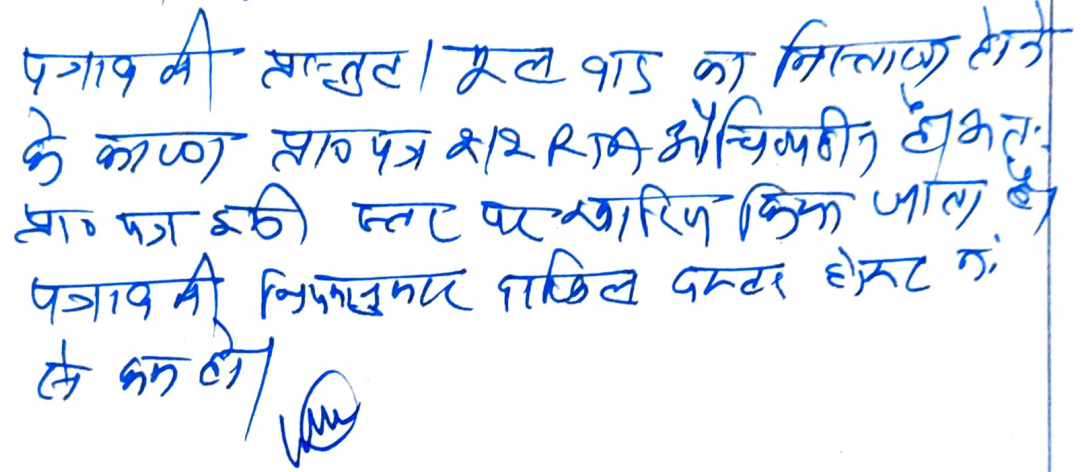 पत्रावली प्रस्तुत। मूल वाद का निस्तारण होने
के कारण प्रा० पत्र अ/2 RTA औचित्यहीन है। अतः
प्रा० पत्र इसी स्तर पर खारिज किया जाता है।
पत्रावली नियमानुसार दाखिल दफ्तर होकर नं.
से कम हो।